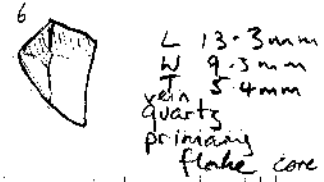 6
L 13.3mm
W 9.3mm
T 5.4mm
vein
quartz
primary
flake core